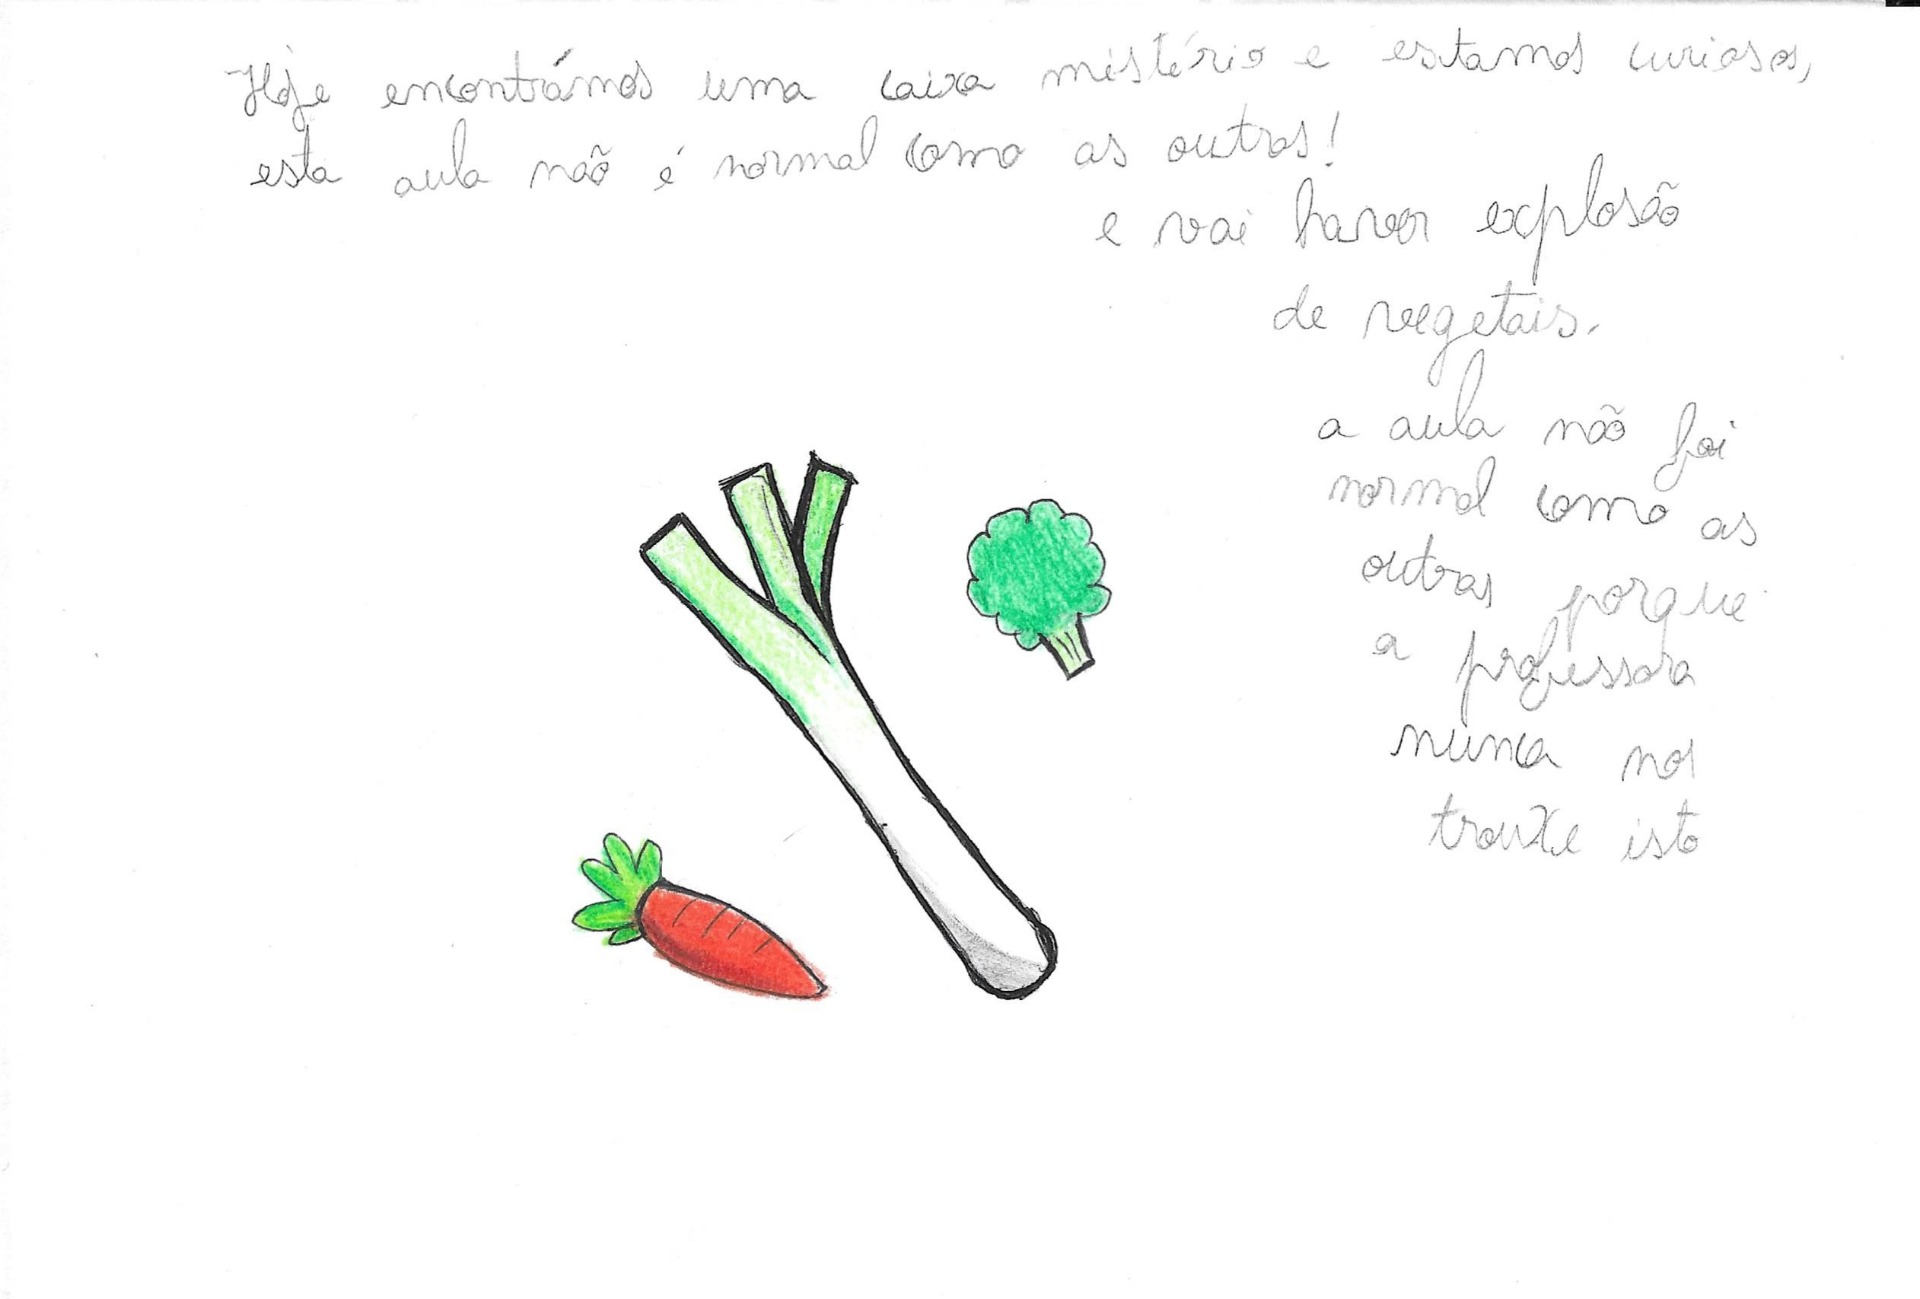 Hoje encontrámos uma caixa mistério e estamos curiosos,
esta aula não é normal como as outras!
e vai haver explosão
de vegetais.
a aula não foi
normal como as
outras porque
a professora
nunca nos
trouxe isto